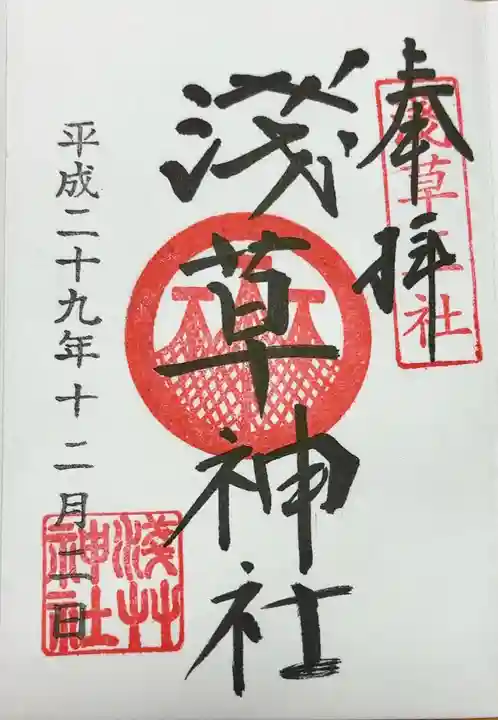 奉拝
淺草三社
淺草神社
平成二十九年十二月二日
淺草
神社